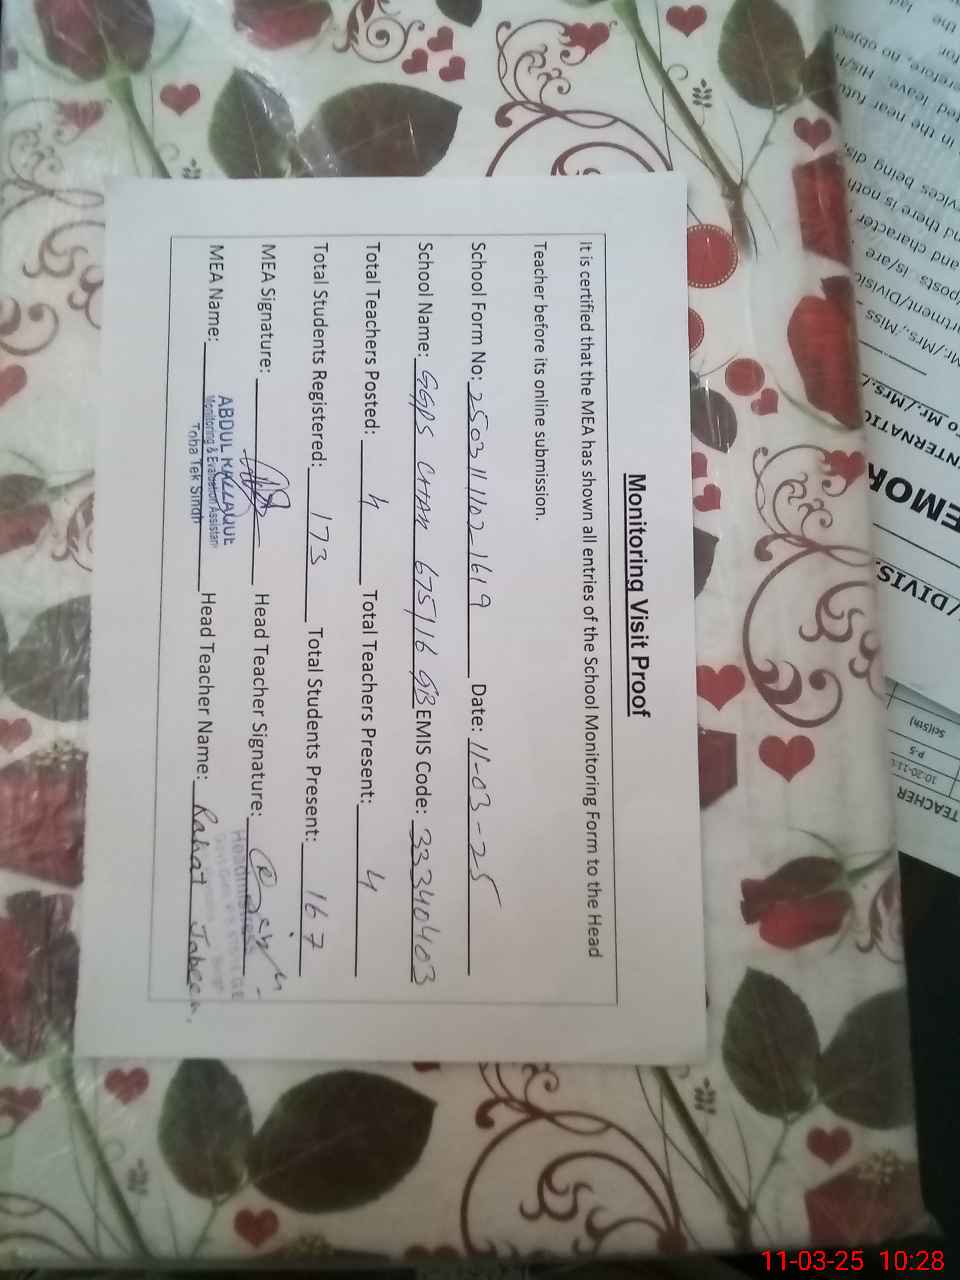 Monitoring Visit Proof
It is certified that the MEA has shown all entries of the School Monitoring Form to the Head
Teacher before its online submission.
School Form No: 250311107-1619 Date: 11-03-25
School Name: GGPS CHAK 675/16 GB EMIS Code: 33340403
Total Teachers Posted: 4 Total Teachers Present: 4
Total Students Registered: 173 Total Students Present: 167
MEA Signature: Head Teacher Signature:
Headmistress
MEA Name: Head Teacher Name: Rahat Jabeen
ABDUL RAZZAQUE
Monitoring & Evaluation Assistant
Toba Tek Singh
the
for
refore, no object
leave. His/h
in the near futu
vices being dis
nd there is noth
and character
posts is/are
artment/Divisio
Mr./Mrs., Miss
To Mr./Mrs./
NTERNATIO
EMOR
/DIVIS
Sci(5th)
P-5
10:20-11:
TEACHER
11-03-25 10:28